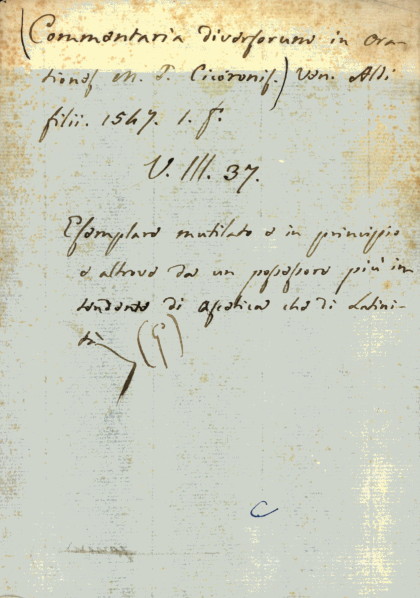 (Commentaria diversorum in Ora-
tiones M. T. Ciceronis.) Ven. Aldi
filii. 1547. 1. f.°
V. III. 37.
Esemplare mutilato e in principio
e altrove da un possessore più in
tendente di Ascetica che di Latini-
tà
(G)
C